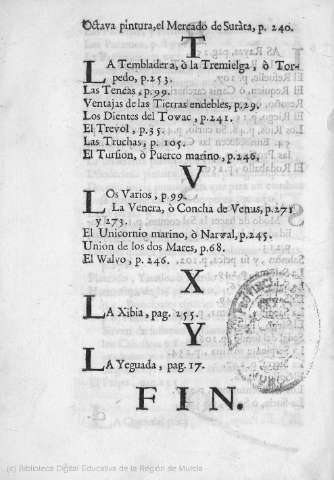 Octava pintura, el Mercado de Suràta, p. 240.
T
LA Tembladera, ò la Tremielga, ò Tor-
pedo, p. 253.
Las Tencas, p. 99.
Ventajas de las Tierras endebles, p. 29.
Los Dientes del Tovac, p. 241.
El Trevol, p. 35.
Las Truchas, p. 105.
El Tursion, ò Puerco marino, p. 246.
V
LOs Varios, p. 99.
La Venera, ò Concha de Venus, p. 271
y 273.
El Unicornio marino, ò Narwal, p. 245.
Union de los dos Mares, p. 68.
El Walvo, p. 246.
X
LA Xibia, pag. 255.
Y
LA Yeguada, pag. 17.
FIN.
(c) Biblioteca Digital Educativa de la Región de Murcia